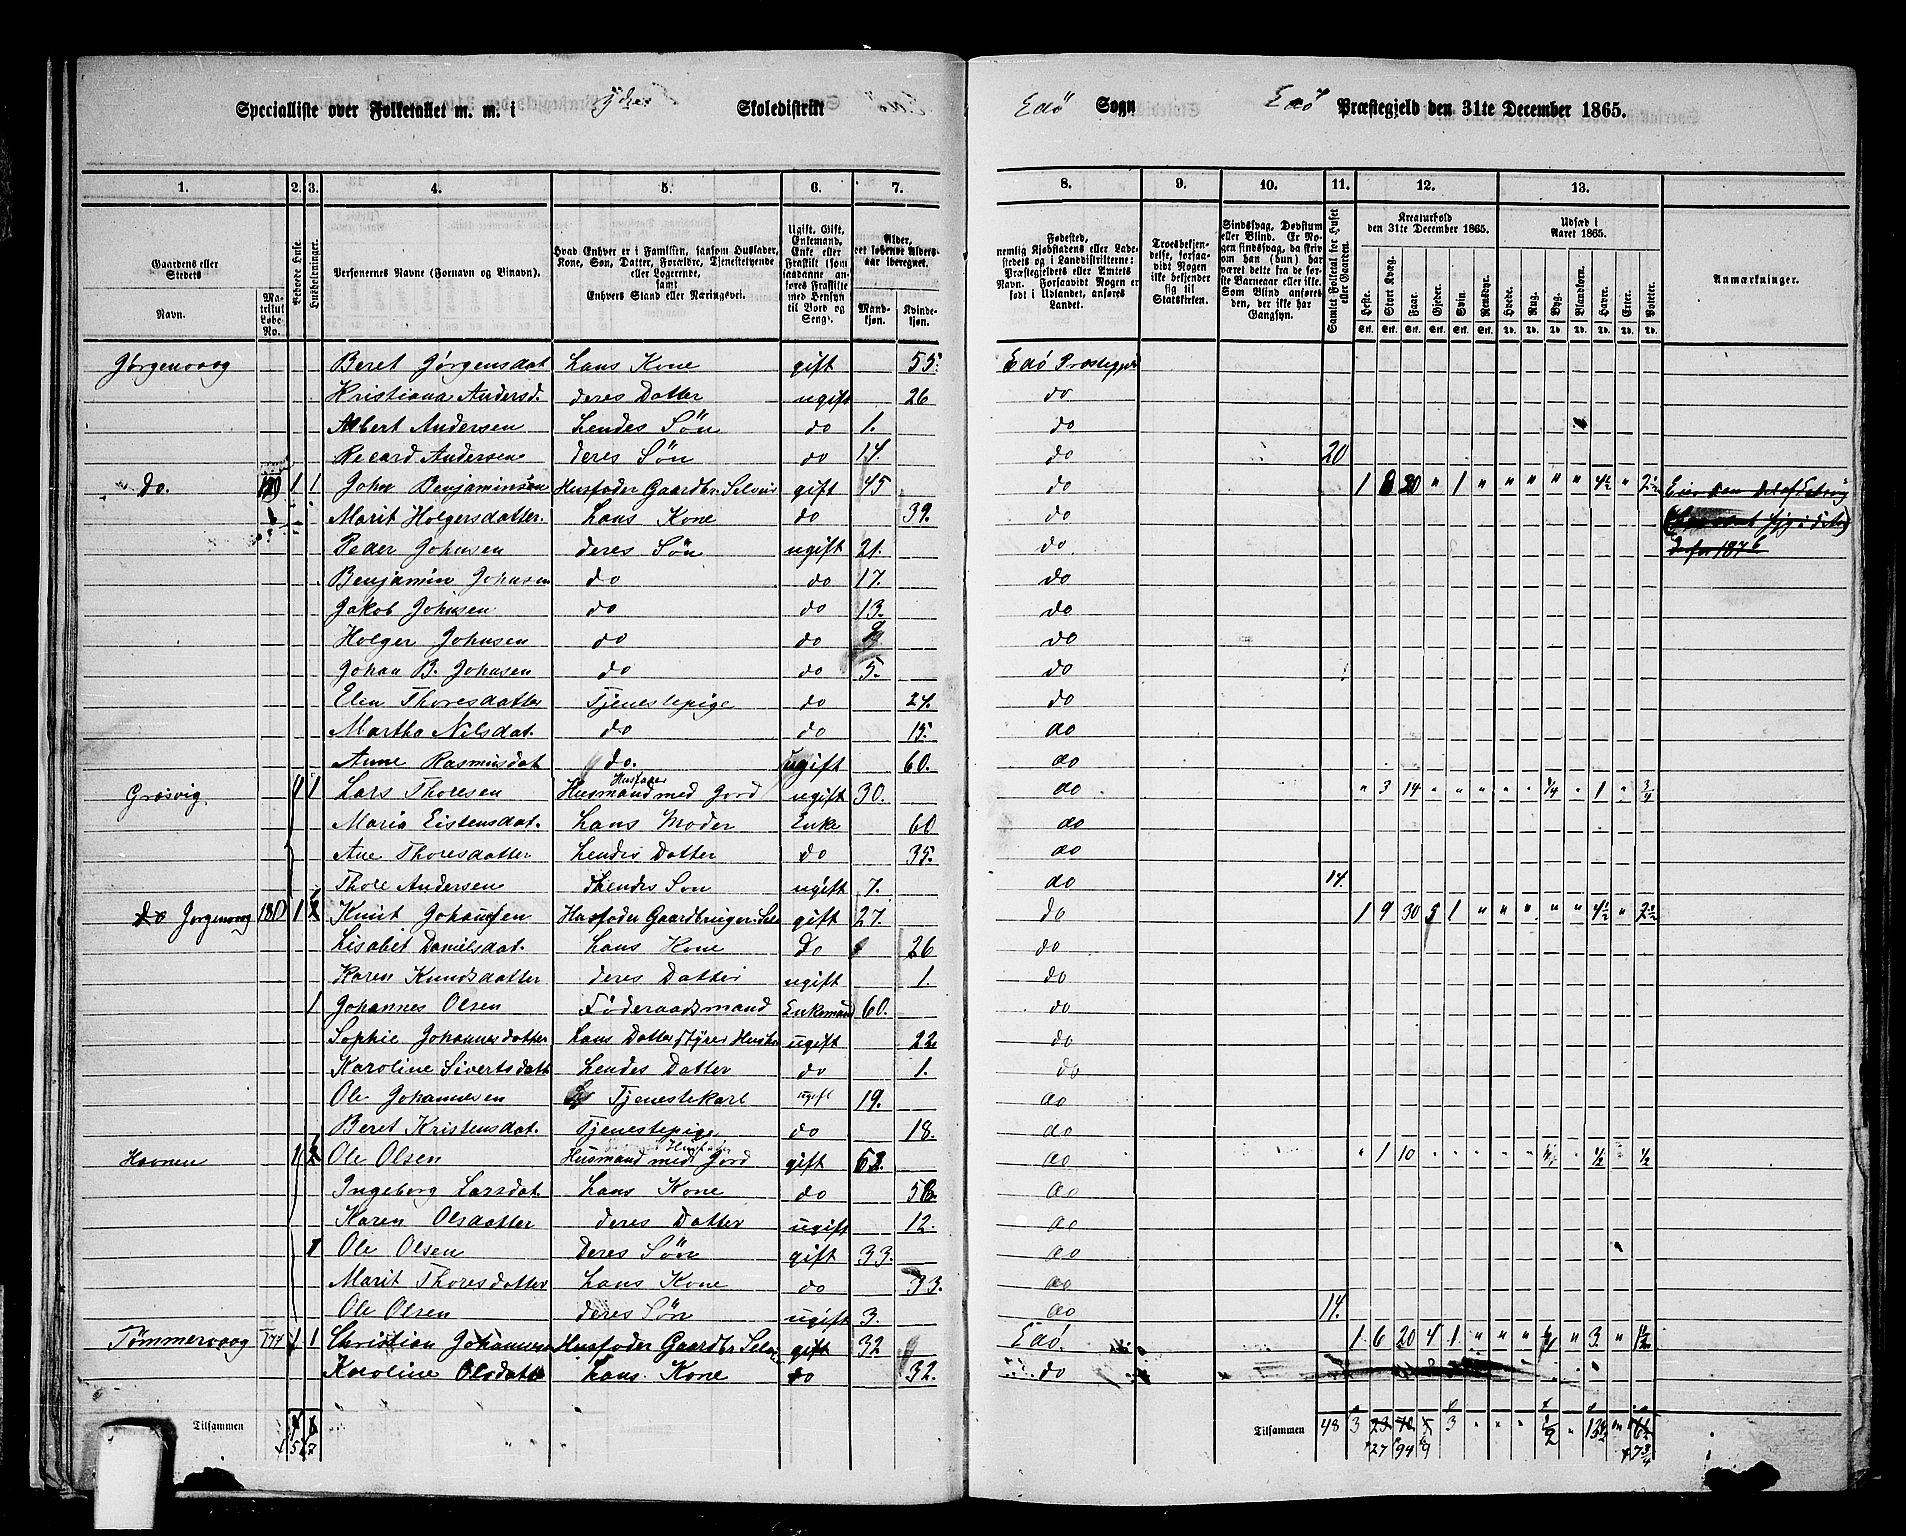 Specialliste over Folketallet m. m. i Ydre Skoledistrikt Edø Sogn Edø Præstegjeld den 31te December 1865.
1. 2. 3. 4. 5. 6. 7. 8. 9. 10. 11. 12. 13.
Gaardens eller Stedets Navn. Matrikul Løbe-No. Beboede Huse. Husholdninger. Personernes Navne (Fornavn og Tilnavn). Hvad Enhver er i Familien, saasom Husfader, Kone, Søn, Datter, Forældre, Tjenestetyende eller Logerende, samt Enhvers Stand eller Næringsvei. Ugift, Gift, Enkemand, Enke eller Fraskilt Alder, det løbende Aldersaar iberegnet. Mandkjøn. Kvindekjøn.
Fødested, nemlig Kjøbstadens eller Ladestedets og i Landdistrikterne: Præstegjeldets eller Amtets Navn. Forsaavidt Nogen er født i Udlandet, anføres Landet. Troesbekjendelse, forsaavidt Nogen ikke bekjender sig til Statskirken. Samlet Folketal for Huset eller Gaarden. Kreaturhold den 31te December 1865. Udsæd i Aaret 1865. Anmærkninger.
Heste. Stort Kvæg. Faar. Gjeder. Svin. Rensdyr. Hvede. Rug. Byg. Blandkorn. Havre. Erter. Poteter.
Jørgenvaag Beret Jørgensdat hans Kone gift 55. Edø Præstegjeld
Kristiana Andersd. deres Datter ugift 26 do
Albert Andersen hendes Søn do 1. do
Recard Andersen deres Søn do 14. do 20
do. 1 1 John Benjaminsen Husfader Gaardbr. Selveier gift 45 do 1 8 20 " 1 " " " " " 4½ " 2½
Marit Holgersdatter. hans Kone do 39. do
Peder Johnsen deres Søn ugift 21. do
Benjamin Johnsen do do 17. do
Jakob Johnsen do do 13. do
Holger Johnsen do do 9 do
Johan B. Johnsen do do 5. do
Elen Thoresdatter Tjenestepige do 24. do
Martha Nilsdat. do do 15. do
Anne Rasmusdat do. ugift 60. do
Græsvig 1 1 Lars Thoresen Husfader Husmand med Jord ugift 30. do " 3 14 " " " " " ¼ " 1 " ¾
Maria Eistensdat. hans Moder Enke 60 do
Ane Thoresdatter hendes Datter do 35. do
Thore Andersen hendes Søn ugift 7. do 14.
do Jørgenvaag 181 1 2 Knut Johansen Husfader Gaardbruger Sele gift 27. do 1 9 30 5 1 " " " " " 4½ " 2½
Lisabet Danielsdat. hans Kone do 26 do
Karen Knudsdatter deres Datter ugift 1. do
1 Johannes Olsen Føderaadsmand Enkemand 60. do
Sophie Johannesdatter hans Datter styrer Huset ugift 22 do
Karoline Sivertsdatt hendes Datter do 1. do
Ole Johannesen Tjenestekarl ugift 19. do
Beret Kristensdat. Tjenestepige do 18. do
1 2 Ole Olsen Husmand med Jord gift 62. do " 1 10 ½ ½
Ingeborg Larsdat. hans Kone do do
Karen Olsdatter deres Datter ugift 12. do
1 Ole Olsen Deres Søn gift 33. do
Marit Thoresdatter hans Kone do 33. do
Ole Olsen deres Søn ugift 3. do 14.
Tømmervaag 174 1 1 Christian Johannesen Husfader Gaardbr Selvei gift 32 Edø. 1 6 20 4 1 " " " " 3. " 1½
Karoline Olsdatt hans Kone do 32. do
Tilsammen Tilsammen 48 3 3
27 94 9 7¾